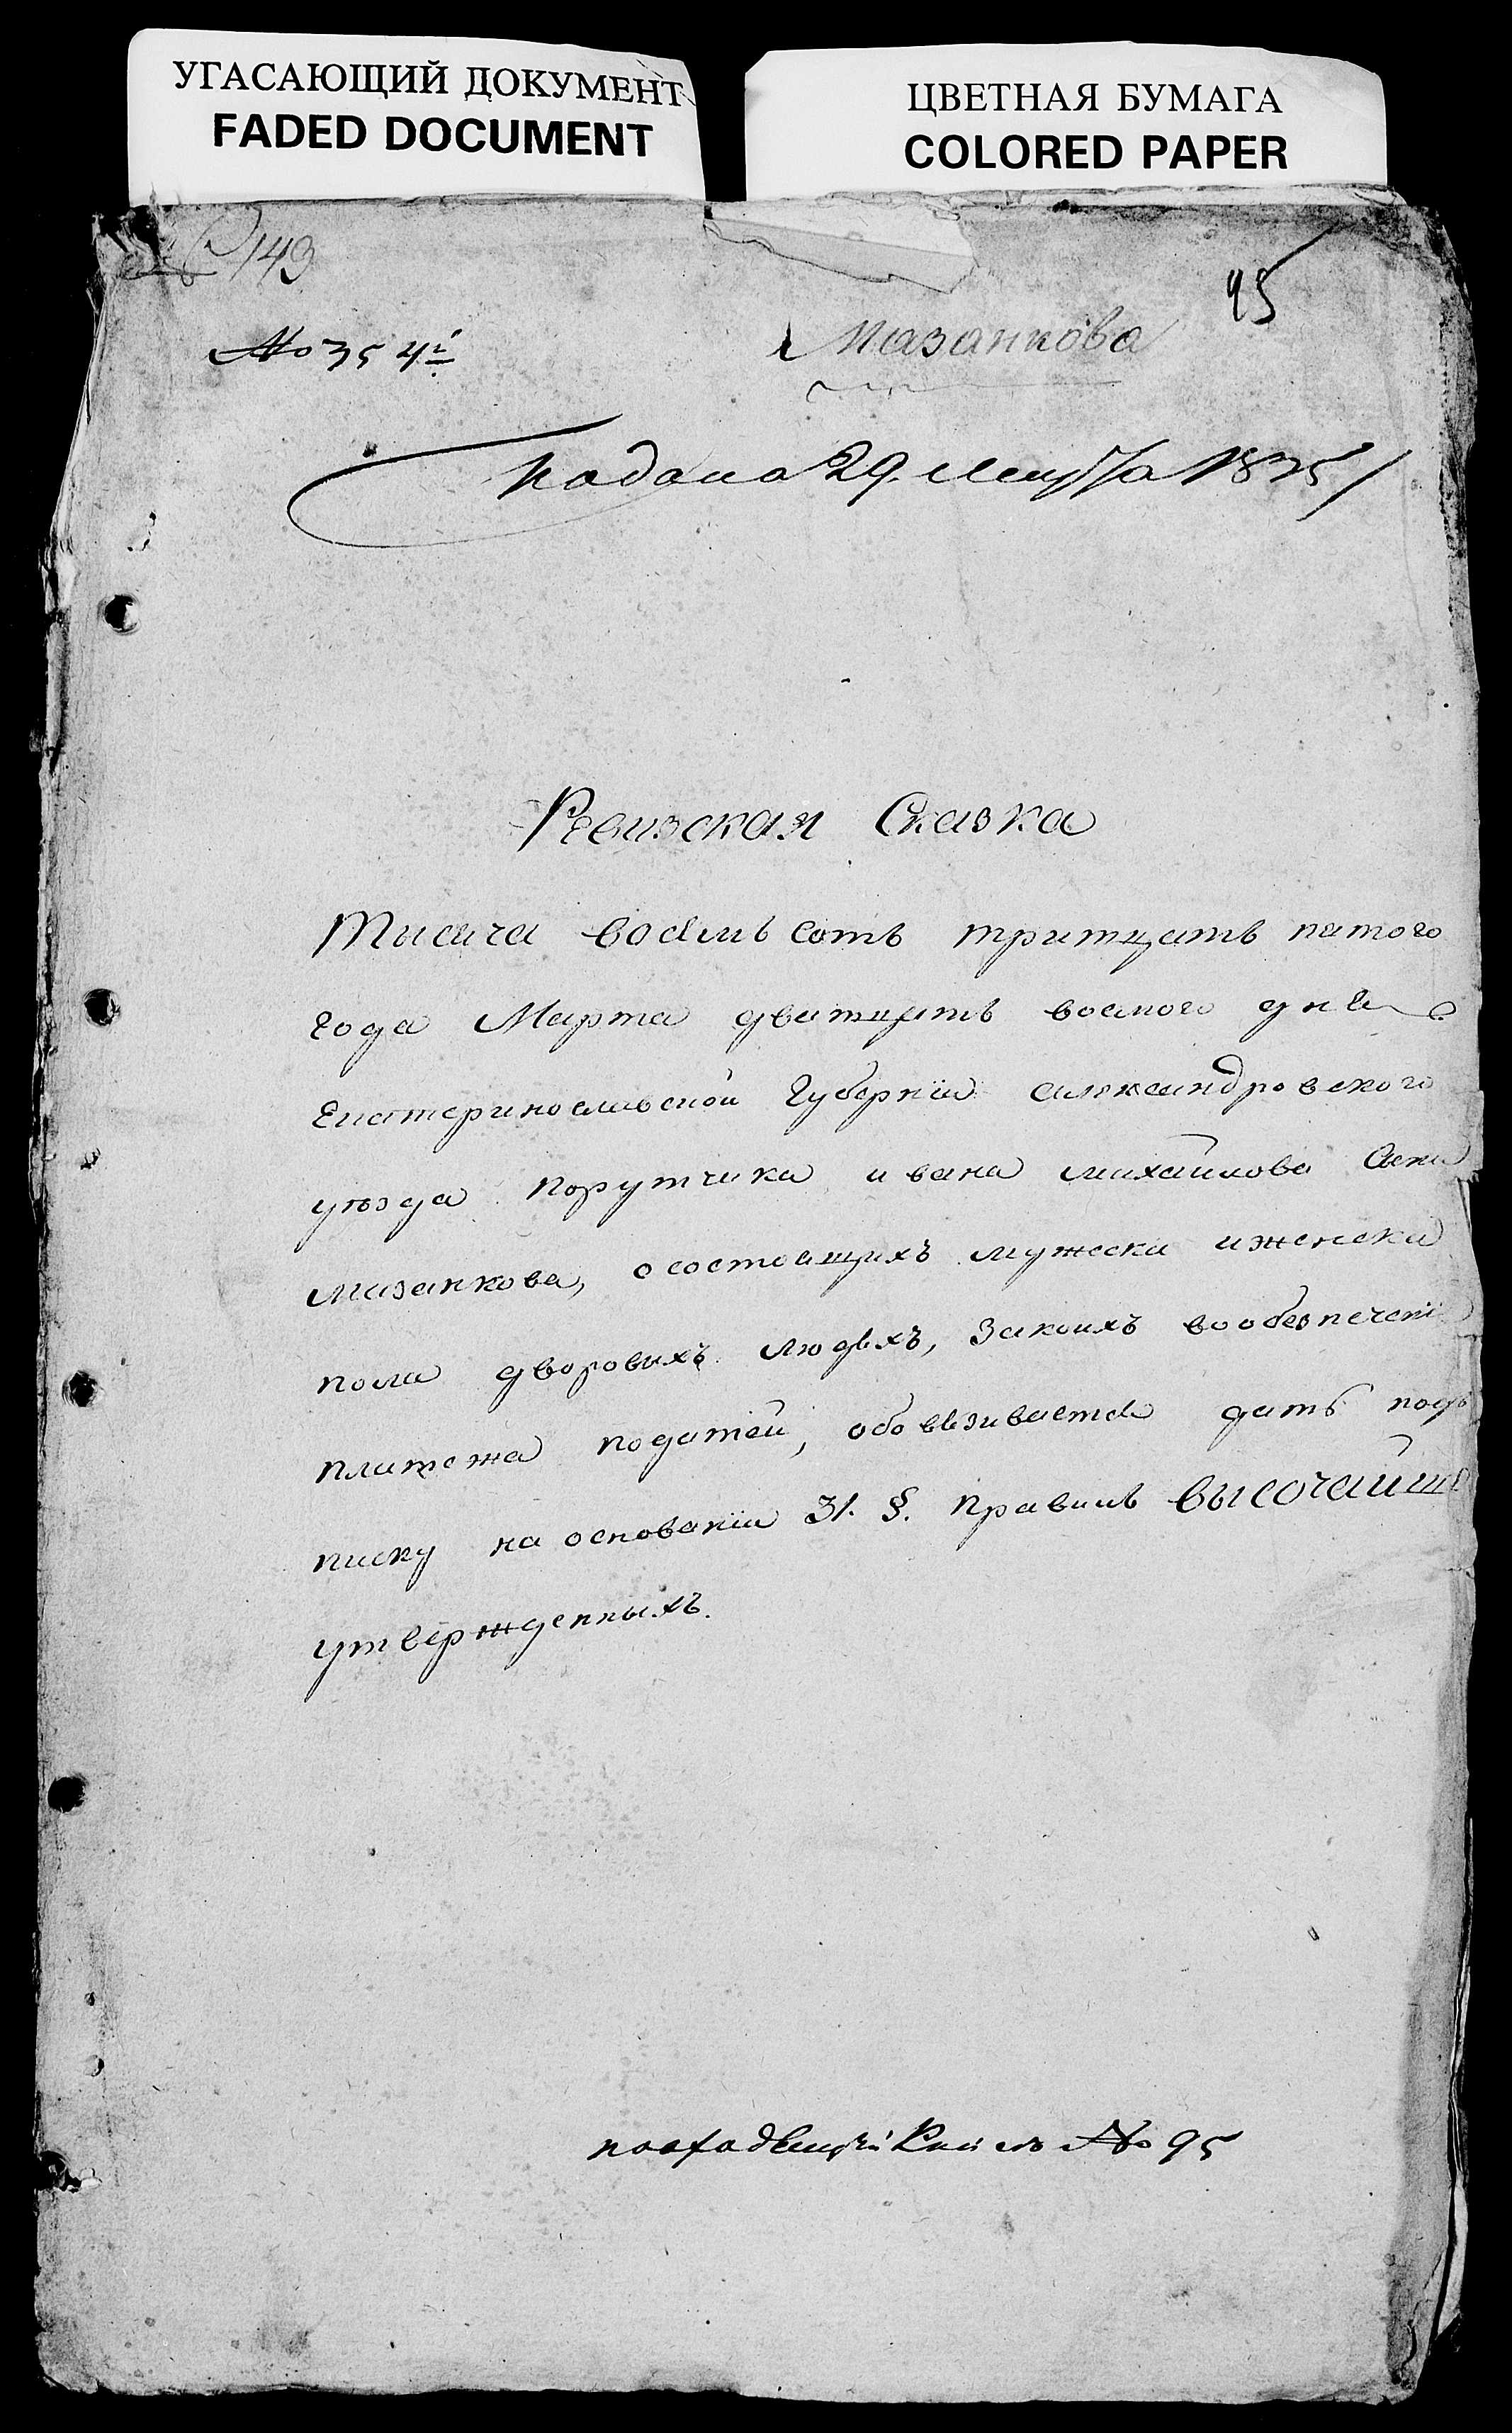 УГАСАЮЩИЙ ДОКУМЕНТ
FADED DOCUMENT
ЦВЕТНАЯ БУМАГА
COLORED PAPER
149
95
№ 354й
Мазанкова
Подана 29. Марта 1835
Ревизская Сказка
Тысяча восемь сотъ тритцать пятого
года Марта дватцать восмого дня
Екатеринославской Губернiи александровского
уѣзда порутчика ивана михайлова сына
мазанкова, о состоящихъ мужеска и женска
пола дворовыхъ людѣхъ, за коихъ во обезпеченiе
платежа податей, обовязивается дать подъ
писку на основанiи 31. §. Правилъ ВЫСОЧАЙШЕ
утвержденныхъ.
№ 95